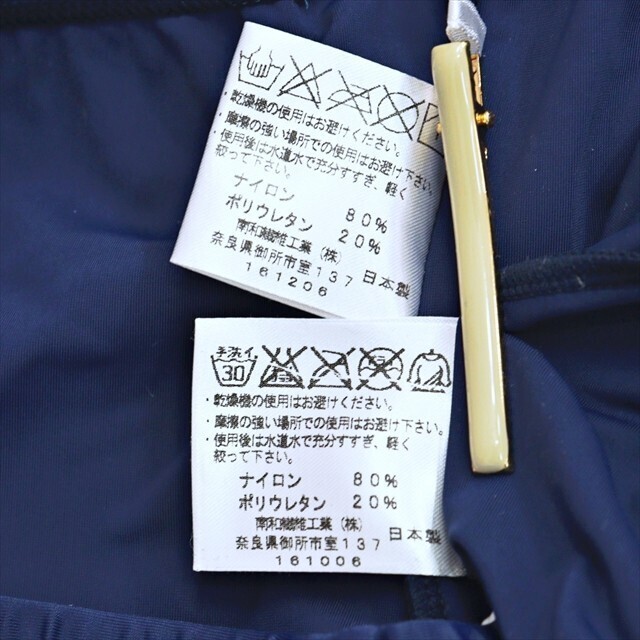 ・乾燥機の使用はお避けください。
・摩擦の強い場所での使用はお避け下さい。
・使用後は水道水で充分すすぎ、軽く
絞って下さい。
ナイロン 80%
ポリウレタン 20%
南和繊維工業(株)
奈良県御所市室137 日本製
161206
手洗イ
30
・乾燥機の使用はお避けください。
・摩擦の強い場所での使用はお避け下さい。
・使用後は水道水で充分すすぎ、軽く
絞って下さい。
ナイロン 80%
ポリウレタン 20%
南和繊維工業(株)
奈良県御所市室137 日本製
161006